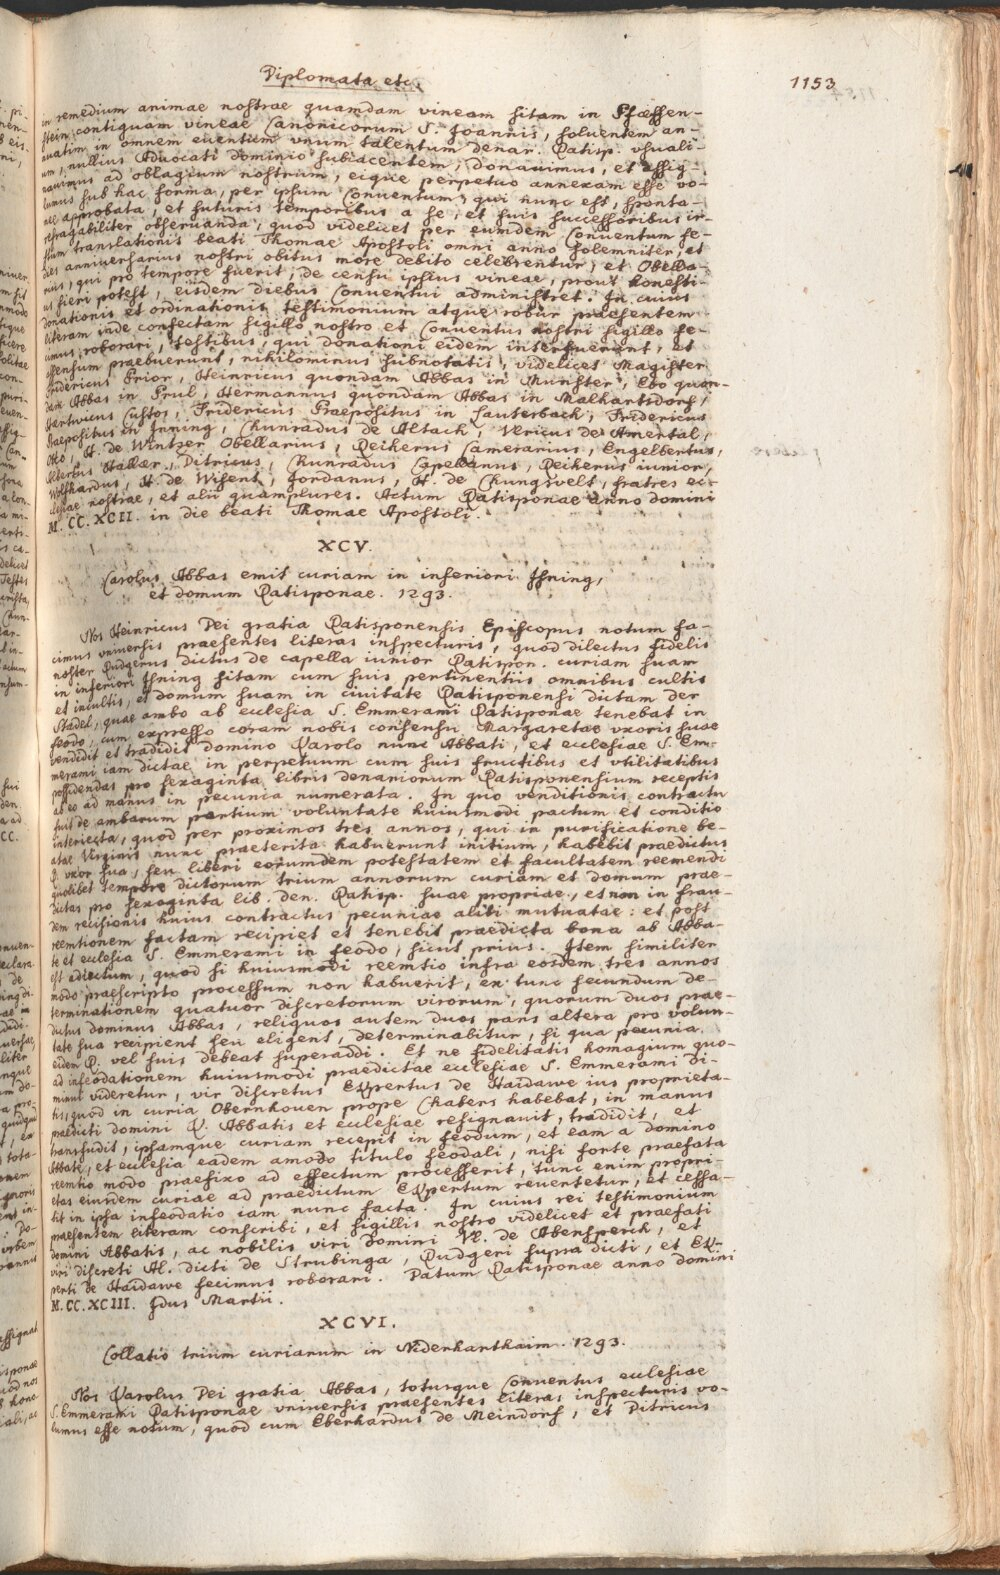 Diplomata etc.
1153
in remedium animae nostrae quamdam vineam sitam in Pfaffen-
stein contiguam vineae Canonicorum S. Joannis, soluentem an-
nuatim in omnem euentiem vnum talentum denar. Ratisp. vsuali-
um, nullius Aduocati dominio subiacentem, donauimus, et assig-
nauimus ad oblagium nostrum, eique perpetuo annexam esse vo-
lumus sub hac forma, per ipsum Conuentum, qui nunc est, sponta-
nee approbata, et futuris temporibus a se, et suis successoribus ir-
refragabiliter obseruanda, quod videlicet per eumdem Conuentum fe-
stum translationis beati Thomae Apostoli omni anno solemniter, et
dies anniuersarius nostri obitus more debito celebrentur, et Obella-
rius, qui pro tempore fuerit, de censu ipsius vineae, prout honesti-
us fieri potest, eisdem diebus Conuentui administret. In cuius
donationis et ordinationis testimonium atque robur praesentem
literam inde confectam sigillo nostro et Conuentus nostri sigillo fe-
cimus roborari, testibus, qui donationi eidem interfuerunt, et
assensum praebuerunt, nihilominus subnotatis, videlicet Magister
Fridericus Prior, Heinricus quondam Abbas in Munster, Ebo quon-
dam Abbas in Prul, Hermannus quondam Abbas in Malhartsdorf,
Hartwicus Custos, Fridericus Praepositus in Lauterbach, Fridericus
Praepositus in Inning, Chunradus de Altach, Vlricus de Amental,
Otto, H. de Wintzer Obellarius, Reikerus Camerarius, Engelbertus,
Albertus Hallaer, Ditricus, Chunradus Capellanus, Reikerus iunior,
Wolfhardus, H. de Wisent, Jordanus, H. de Chungsvelt, fratres ec-
clesiae nostrae, et alii quamplures. Actum Ratisponae anno domini
M. CC. XCII. in die beati Thomae Apostoli.
XCV.
Carolus Abbas emit curiam in inferiori Ihning,
et domum Ratisponae. 1293.
Nos Heinricus Dei gratia Ratisponensis Episcopus notum fa-
cimus vniuersis praesentes literas inspecturis, quod dilectus fidelis
noster Rudgerus dictus de capella iunior Ratispon. curiam suam
in inferiori Ihning sitam cum suis pertinentiis omnibus cultis
et incultis, et domum suam in ciuitate Ratisponensi dictam der
Stadel, quae ambo ab ecclesia S. Emmerami Ratisponae tenebat in
feodo, cum expresso coram nobis consensu Margaretae vxoris suae
vendidit et tradidit domino Karolo nunc Abbati, et ecclesiae S. Em-
merami iam dictae in perpetuum cum suis fructibus et vtilitatibus
possidendas pro sexaginta libris denariorum Ratisponensium receptis
ab eo ad manus in pecunia numerata. In quo venditionis contractu
fuit de ambarum partium voluntate huiusmodi pactum et conditio
interiecta, quod per proximos tres annos, qui in purificatione be-
atae Virginis nunc praeterita habuerunt initium, habebit praedictus
R. vxor sua, seu liberi eorumdem potestatem et facultatem reemendi
quolibet tempore dictorum trium annorum curiam et domum prae-
dictas pro sexaginta lib. den. Ratisp. suae propriae, et non in frau-
dem recisionis huius contractus pecuniae alibi mutuatae: et post
reemtionem factam recipiet et tenebit praedicta bona ab Abba-
te et ecclesia S. Emmerami in feodo, sicut prius. Item similiter
est adiectum, quod si huiusmodi reemtio infra eosdem tres annos
modo praescripto processum non habuerit, ex tunc secundum de-
terminationem quatuor discretorum virorum, quorum duos prae-
dictus dominus Abbas, reliquos autem duos pars altera pro volun-
tate sua recipient seu eligent, determinabitur, si qua pecunia
eidem R. vel suis debeat superaddi. Et ne fidelitatis homagium quo-
ad infeodationem huiusmodi praedictae ecclesiae S. Emmerami di-
minui videretur, vir discretus Ekprertus de Haidawe ius proprieta-
tis, quod in curia Obernhouen prope Chabers habebat, in manus
praedicti domini K. Abbatis et ecclesiae resignauit, tradidit, et
transfudit, ipsamque curiam recepit in feodum, et eam a domino
Abbate, et ecclesia eadem amodo titulo feodali, nisi forte praefata
reemtio modo praefixo ad effectum processerit, tunc enim propri-
etas eiusdem curiae ad praedictum Ekpertum reuertetur, et cessa-
bit in ipsa infeodatio iam nunc facta. In cuius rei testimonium
praesentem literam conscribi, et sigillis nostro videlicet et praefati
domini Abbatis, ac nobilis viri domini Vl. de Abensperch, et
viri discreti Al. dicti de Strubinga, Rudgeri supra dicti, et Ek-
perti de Haidawe fecimus roborari. Datum Ratisponae anno domini
M. CC. XCIII. Idus Martii.
XCVI.
Collatio trium curiarum in Niderharthaim. 1293.
Nos Karolus Dei gratia Abbas, totusque Conuentus ecclesiae
S. Emmerami Ratisponae vniuersis praesentes literas inspecturis vo-
lumus esse notum, quod cum Eberhardus de Meindorf, et Ditricus